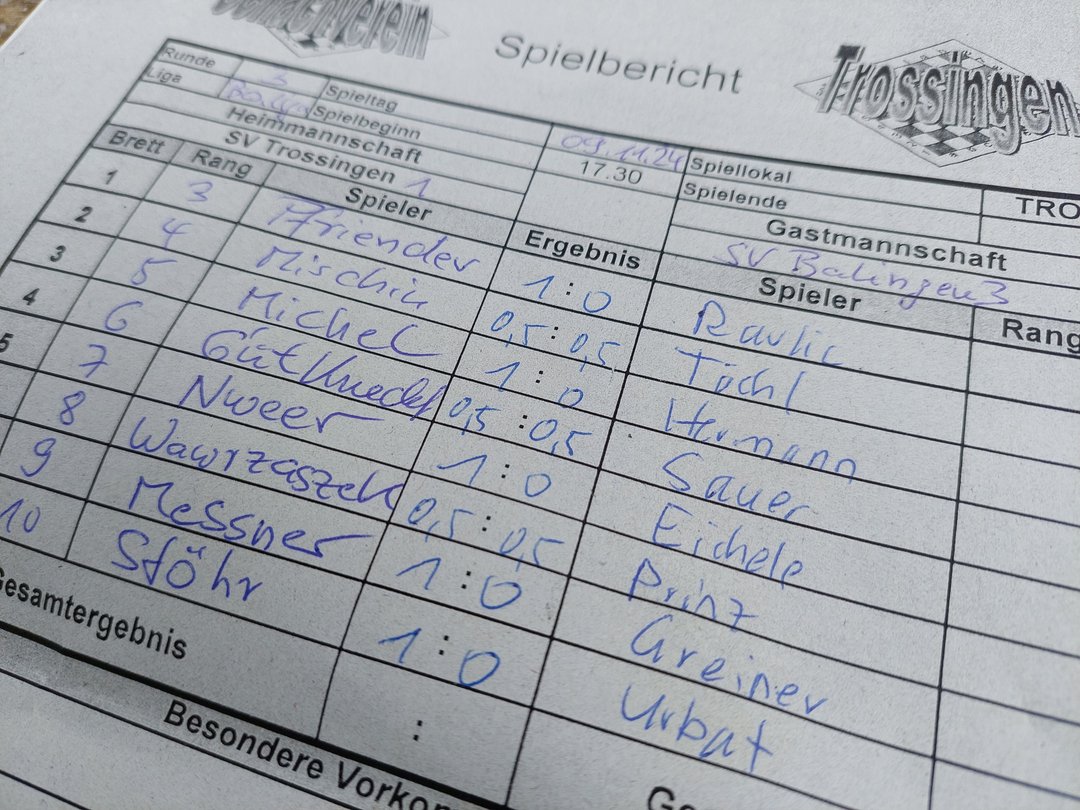 verein
Spielbericht
Trossingen
Runde 3 Spieltag 09.11.24 Spiellokal TRO
Liga Spielbeginn 17.30 Spielende
Heimmannschaft Gastmannschaft
SV Trossingen 1 SV Balingen 3
Brett Rang Spieler Ergebnis Spieler Rang
1 3 Pfriender 1:0 Ravlic
2 4 Mischin 0,5:0,5 Töchl
3 5 Michel 1:0 Hermann
4 6 Gutknecht 0,5:0,5 Sauer
5 7 Nweer 1:0 Eichele
8 Wawrzaszek 0,5:0,5 Prinz
9 Messner 1:0 Greiner
10 Stöhr 1:0 Urbat
Gesamtergebnis : Ge
Besondere Vorko